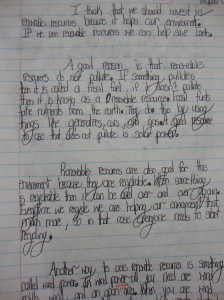 I think that we should invest in
renewable resources because it helps our environment.
If we use renewable resources we can help save Earth.
A good reason is that renewable
resources do not pollute. If something pollutes
then it is called a fossil fuel, if it doesn't pollute
then it is known as a renewable resource. Fossil fuels
take nutrients from the earth. They do this by using
things like generators, cars, and gas. A good resource
to use that does not pollute is solar power.
Renewable resources are also good for the
environment because they are recyclable. When something
is recyclable then it can be used over and over again.
Everytime we recycle we are helping our environment that
much more, so in that case everyone needs to start
recycling.
Another way to use renewable resources is something
called wind power. For wind power all you need are wind